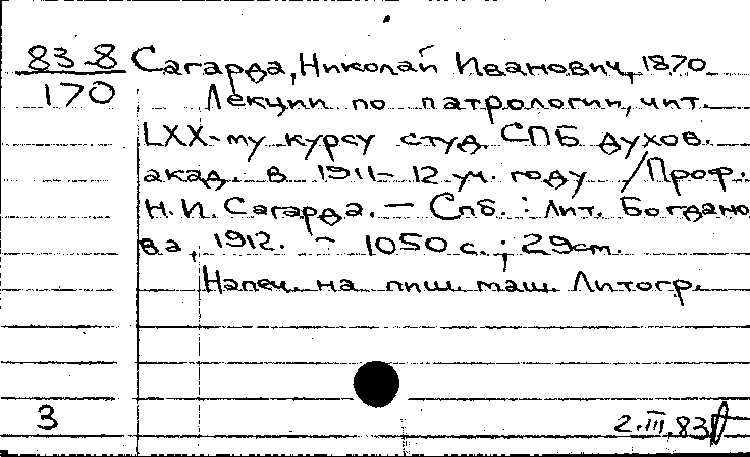 83-8 Сагарда, Николай Иванович, 1870
170 Лекции по патрологии, чит.
LXX-му курсу студ. СПБ духов.
акад. в 1911-12 уч. году / Проф.
Н. И. Сагарда. — Спб.: Лит. Богдано
ва, 1912. - 1050 с.; 29 см.
Напеч. на пиш. маш. Литогр.
3 2.III.83